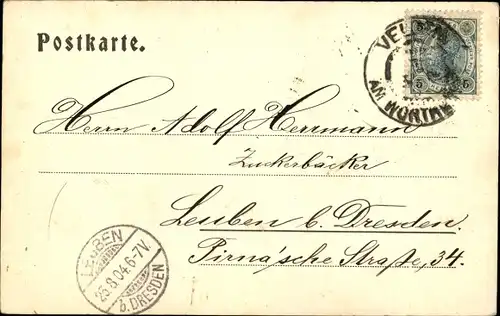 Postkarte.
VELDEN
AM WÖRTH
5 5
Herrn Adolf Herrmann
Zuckerbäcker
Leuben b. Dresden.
Pirna'sche Straße, 34.
LEUBEN
25.8.04.6-7V.
b. DRESDEN